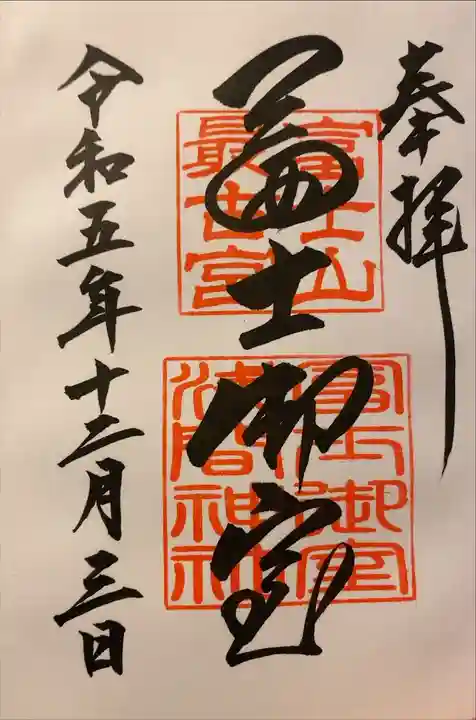 奉拝
冨士御室
富士山
最古宮
冨士御室
浅間神社
令和五年十二月三日